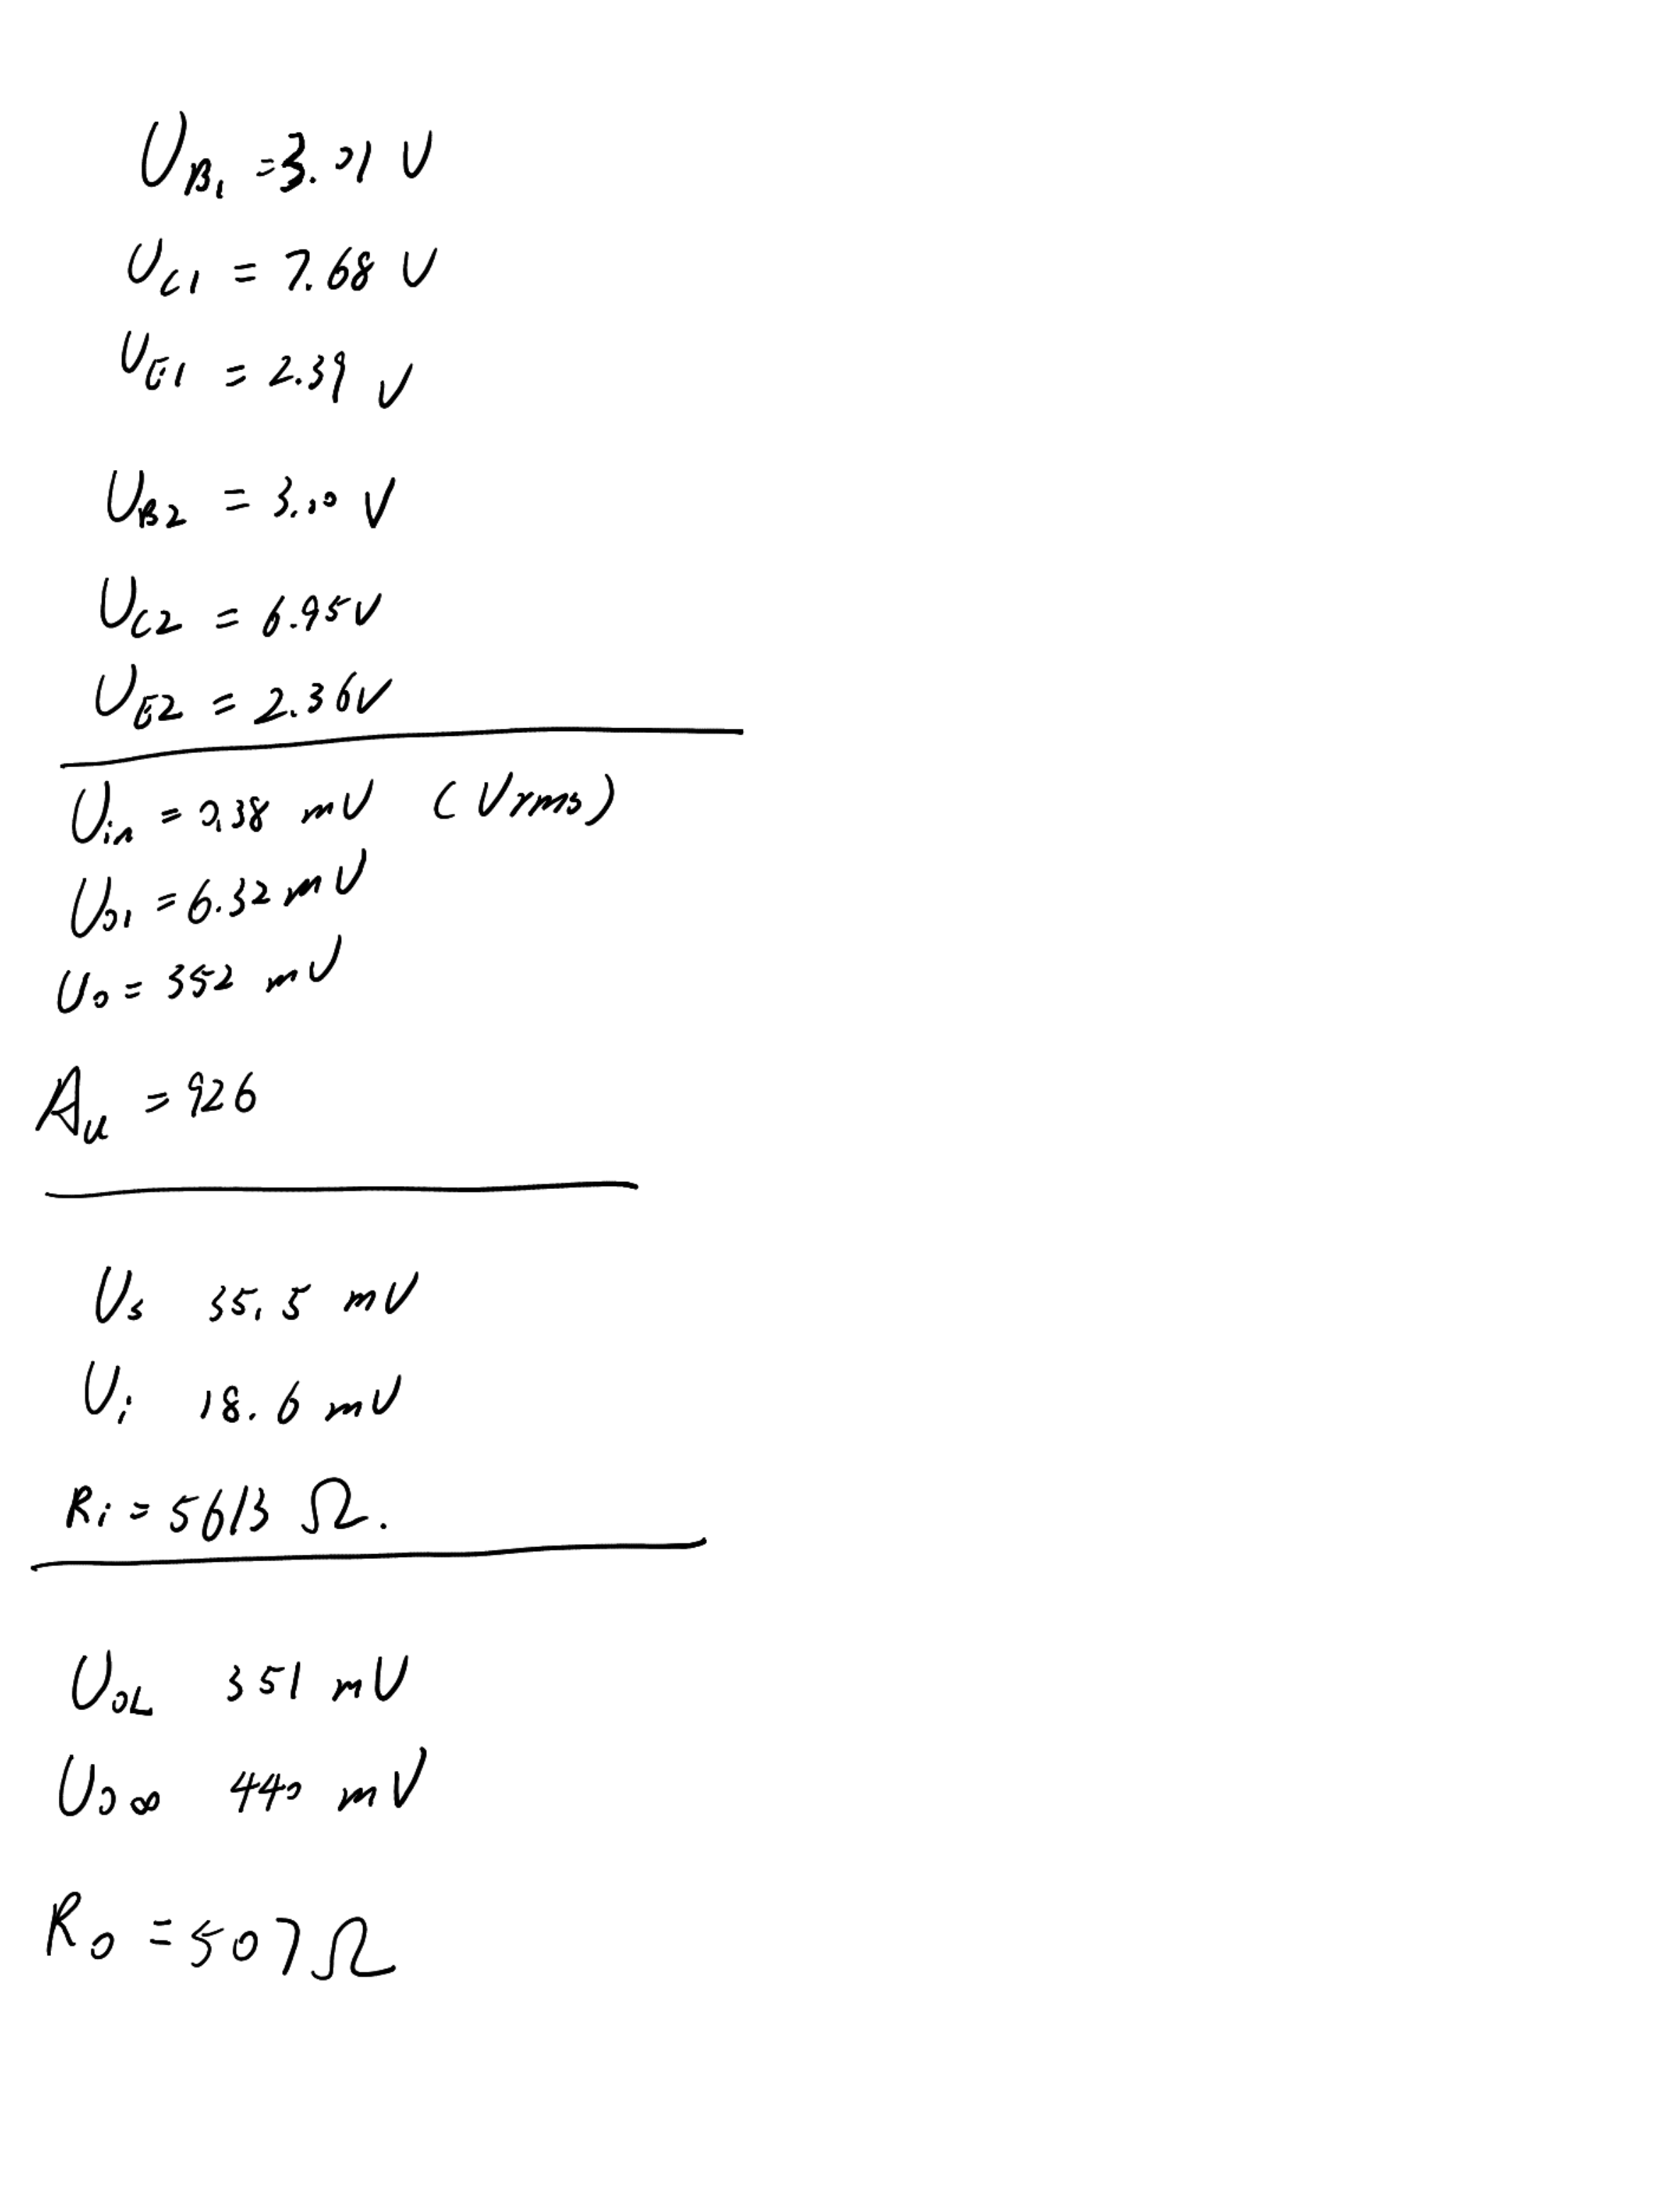 U_B1 = 3.01 V
U_C1 = 7.68 V
U_E1 = 2.39 V
U_B2 = 3.10 V
U_C2 = 6.95 V
U_E2 = 2.36 V
U_in = 0.38 mV (Vrms)
U_01 = 6.32 mV
U_0 = 352 mV
A_u = 926
U_s 35.5 mV
U_i 18.6 mV
R_i = 5613 Ω.
U_OL 351 mV
U_O∞ 440 mV
R_O = 507 Ω